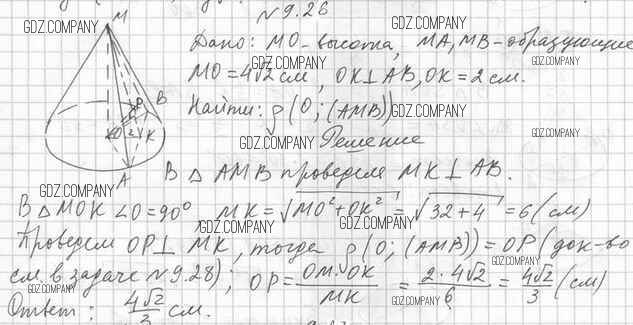 №9.26
M
GDZ.COMPANY
GDZ.COMPANY
Дано: MO - высота, MA, MB - образующие
GDZ.COMPANY
MO = 4√2 см, OK ⊥ AB, OK = 2 см.
GDZ.COMPANY
Найти: ρ (O; (AMB))
GDZ.COMPANY
P B
O 2 K
A
GDZ.COMPANY
Решение
В △ AMB проведем MK ⊥ AB.
GDZ.COMPANY
В △ MOK ∠O = 90°, MK = √MO² + OK² = √32 + 4 = 6 (см)
GDZ.COMPANY GDZ.COMPANY
Проведем OP ⊥ MK, тогда ρ (O; (AMB)) = OP (док-во
GDZ.COMPANY
см. в задаче №9.28); OP = OM · OK / MK = 2 · 4√2 / 6 = 4√2 / 3 (см)
GDZ.COMPANY GDZ.COMPANY GDZ.COMPANY
Ответ: 4√2 / 3 см.